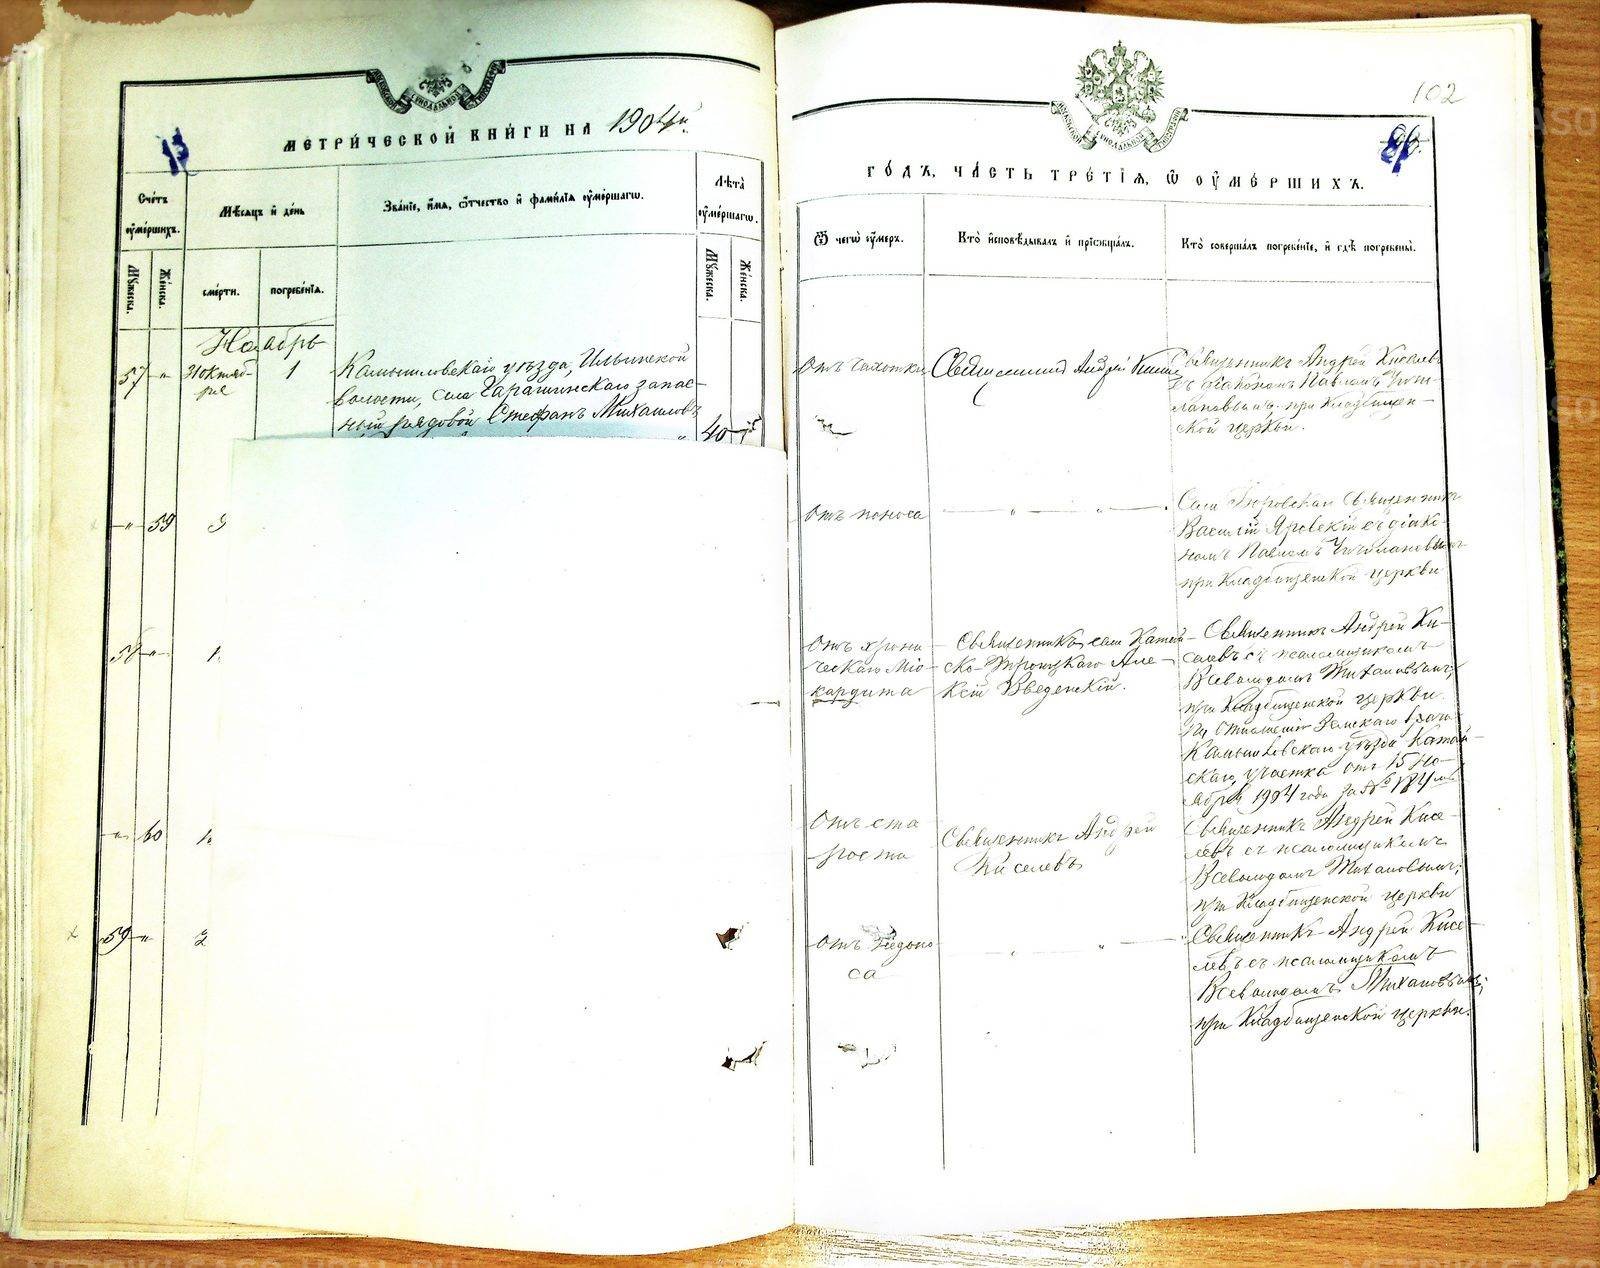 МЕТРИ́ЧЕСКОЙ КНИ́ГИ НА 1904й
Сче́тъ ᲂу҆ме́ршихъ.
Мѣ́сяцъ и҆ де́нь
Зва́нїе, и҆́мя, ѻ҆́тчество и҆ фами́лїя ᲂу҆ме́ршагѡ.
Лѣ́та ᲂу҆ме́ршагѡ.
Мꙋ́жеска.
Же́нска.
сме́рти.
погребе́нїя.
Мꙋ́жеска.
Же́нска.
Ноябрь
57 "
31 Октяб-
ря
1
Камышловскаго уѣзда, Ильинской
волости, села Гарашинскаго запас-
ный рядовой Стефанъ Михаиловъ
40
" 59
58 "
" 60
59 "
102
ГО́ДЪ, ЧА́СТЬ ТРЕ́ТЇЯ, Ѡ҆ ОУ҆МЕ́РШИХЪ.
Ѿ чегѡ̀ ᲂу҆́меръ.
Кто̀ и҆сповѣ́дывалъ и҆ прїѡбща́лъ.
Кто̀ соверша́лъ погребе́нїе, и҆ гдѣ̀ погребены̀.
Отъ чахотки
Священникъ Андрей
Священникъ Андрей Киселевъ
съ діакономъ Павломъ
при Кладбищен-
ской церкви.
Отъ поноса
" "
Села Священникъ
Василій Яровскій съ діако-
номъ Павломъ
при Кладбищенской церкви
Отъ хрони
ческаго міо
кардита
Священникъ села Катай-
ско-Троицкаго Але-
ксій Введенскій.
Священникъ Андрей Ки-
селевъ съ псаломщикомъ
Всеволодомъ Тихановымъ;
при Кладбищенской церкви.
По отношенію Земскаго врача
Камышловскаго уѣзда Катай-
скаго участка отъ 15 Но-
ября 1904 года за № 184
Отъ ста
рости
Священникъ Андрей
Киселевъ
Священникъ Андрей Кисе-
левъ съ псаломщикомъ
Всеволодомъ Тихановымъ;
при Кладбищенской церкви
Отъ
са
" "
Священникъ Андрей Кисе-
левъ съ псаломщикомъ
Всеволодомъ Тихановымъ;
при Кладбищенской церкви.